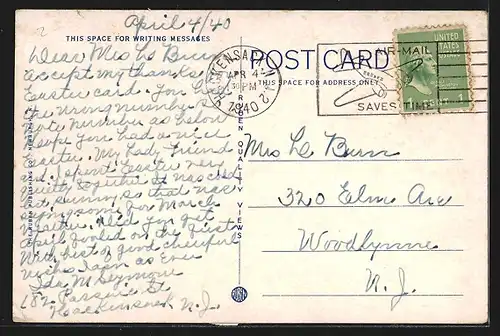 April 4/40
THIS SPACE FOR WRITING MESSAGES
Dear Mrs Le Burn
accept my thanks
Easter card. You had
the wrong number
note number as below
hope you had a nice
Easter. My lady friend
and I spent Easter very
quietly together it was cold
but sunny so that was
for March
weather. Did you get
April fooled on the first
With best of good cheerful
wishs I am as Ever
Ida M Seymour
182 Passaic St
Hackensack N.J.
POST CARD
THIS SPACE FOR ADDRESS ONLY
HACKENSACK, N.J.
APR 4
PM
1940
AIR-MAIL
SAVES TIME
UNITED
STATES
POSTAGE
1
Mrs Le Burn
320 Elm Ave
Woodlynne
N. J.
QUALITY VIEWS